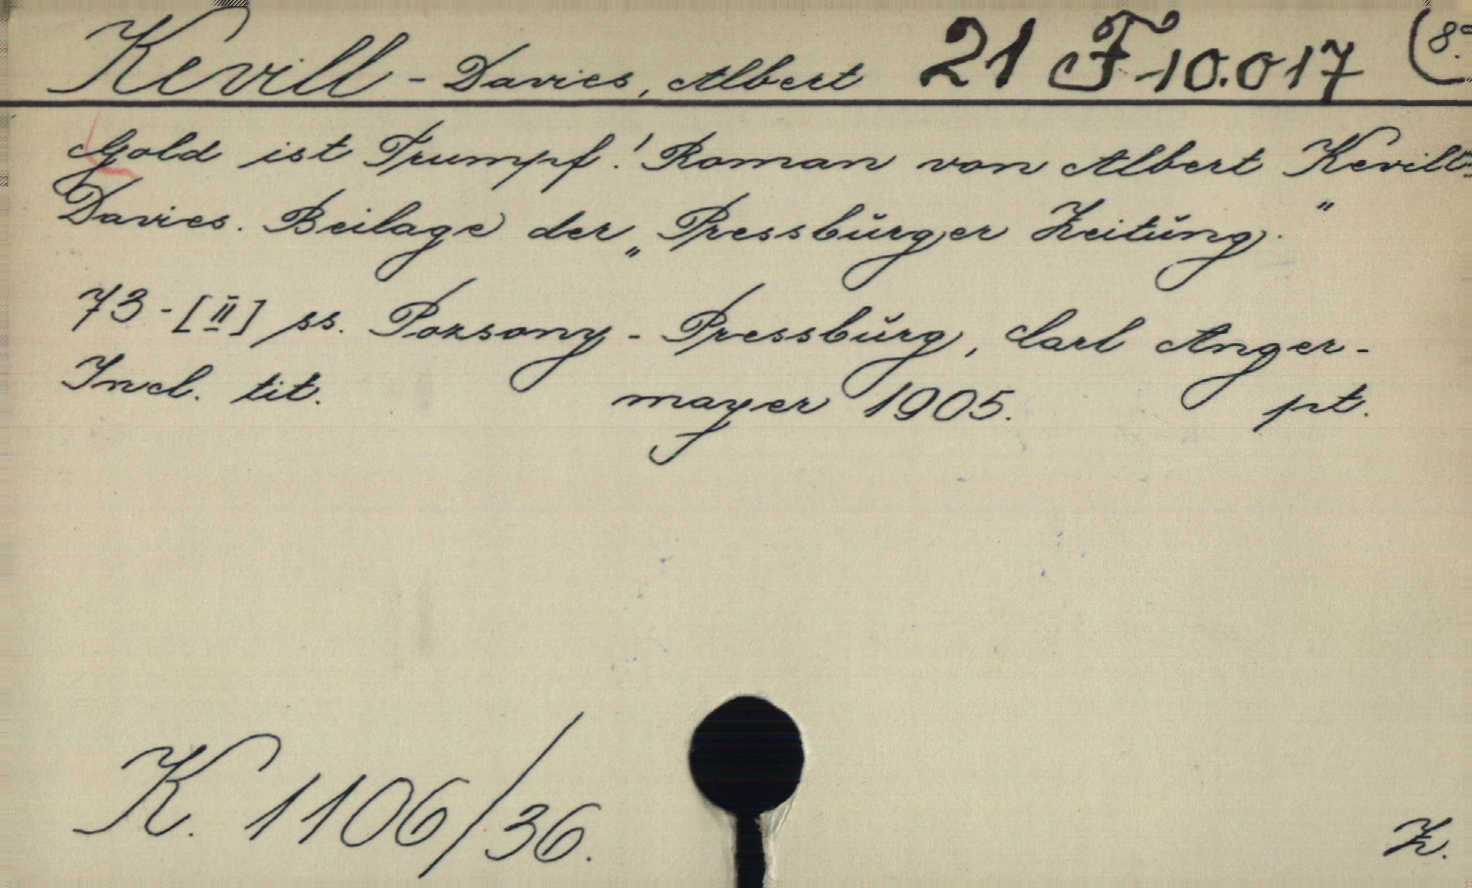 Kevill - Davies, Albert 21 F 10.017 (8°
Gold ist Trumpf! Roman von Albert Kevill-
Davies. Beilage der „Pressburger Zeitung."
73 - [II] ss. Pozsony - Pressburg, Carl Anger-
Incl. tit. mayer 1905. pt.
K. 1106/36.
Z.